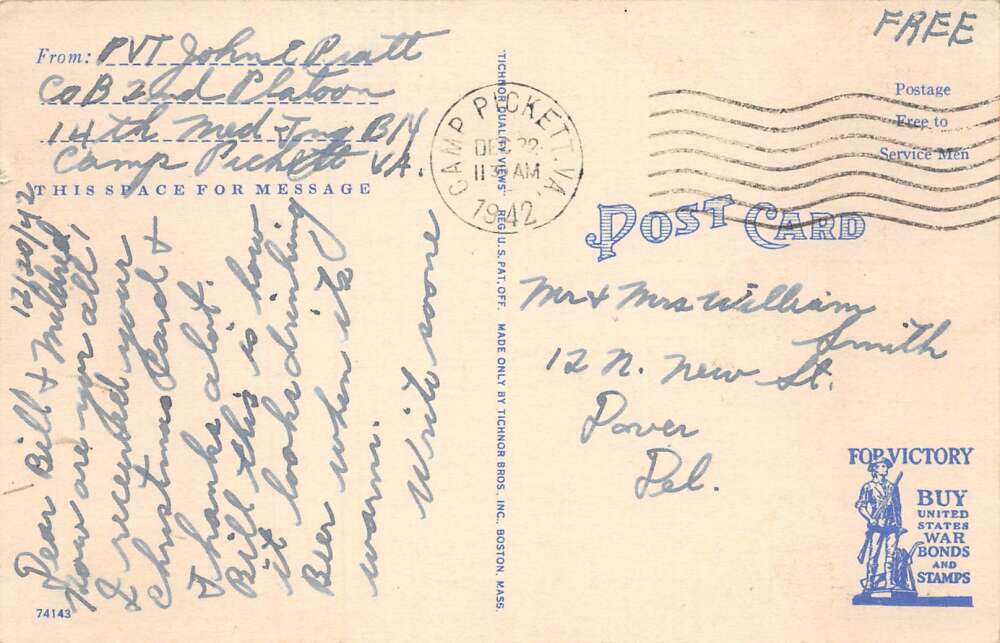 FREE
From: PVT John E Pratt
Co B 2nd Platoon
14th Med Tng BN
Camp Pickett VA.
THIS SPACE FOR MESSAGE
12/20/42
Dear Bill & Mildred,
How are you all,
I received your
Christmas Card &
Thanks alot.
Bill this is how
it looks drinking
Beer when its
warm.
Write soone
74143
"TICHNOR QUALITY VIEWS" REG. U.S. PAT. OFF. MADE ONLY BY TICHNOR BROS., INC., BOSTON, MASS.
CAMP PICKETT, VA.
DEC 22
11 30 AM
1942
Postage
Free to
Service Men
POST CARD
Mr & Mrs William
Smith
12 N. New St.
Dover
Del.
FOR VICTORY
BUY
UNITED
STATES
WAR
BONDS
AND
STAMPS